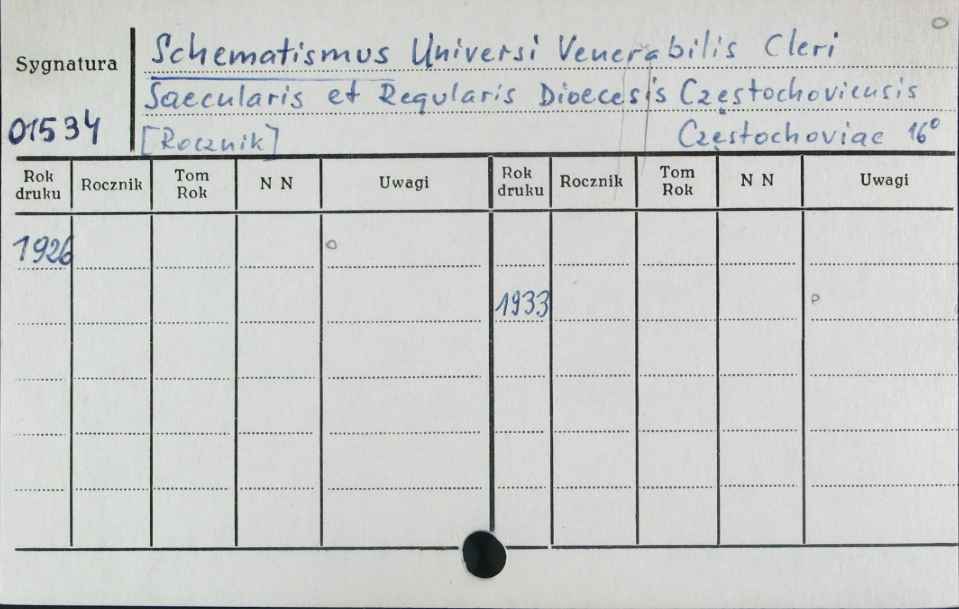 Sygnatura
Schematismus Universi Venerabilis Cleri
Saecularis et Regularis Dioecesis Częstochoviensis
01534
[Rocznik] Częstochoviae 16°
Rok druku Rocznik Tom Rok N N Uwagi Rok druku Rocznik Tom Rok N N Uwagi
1926 o
1933 p